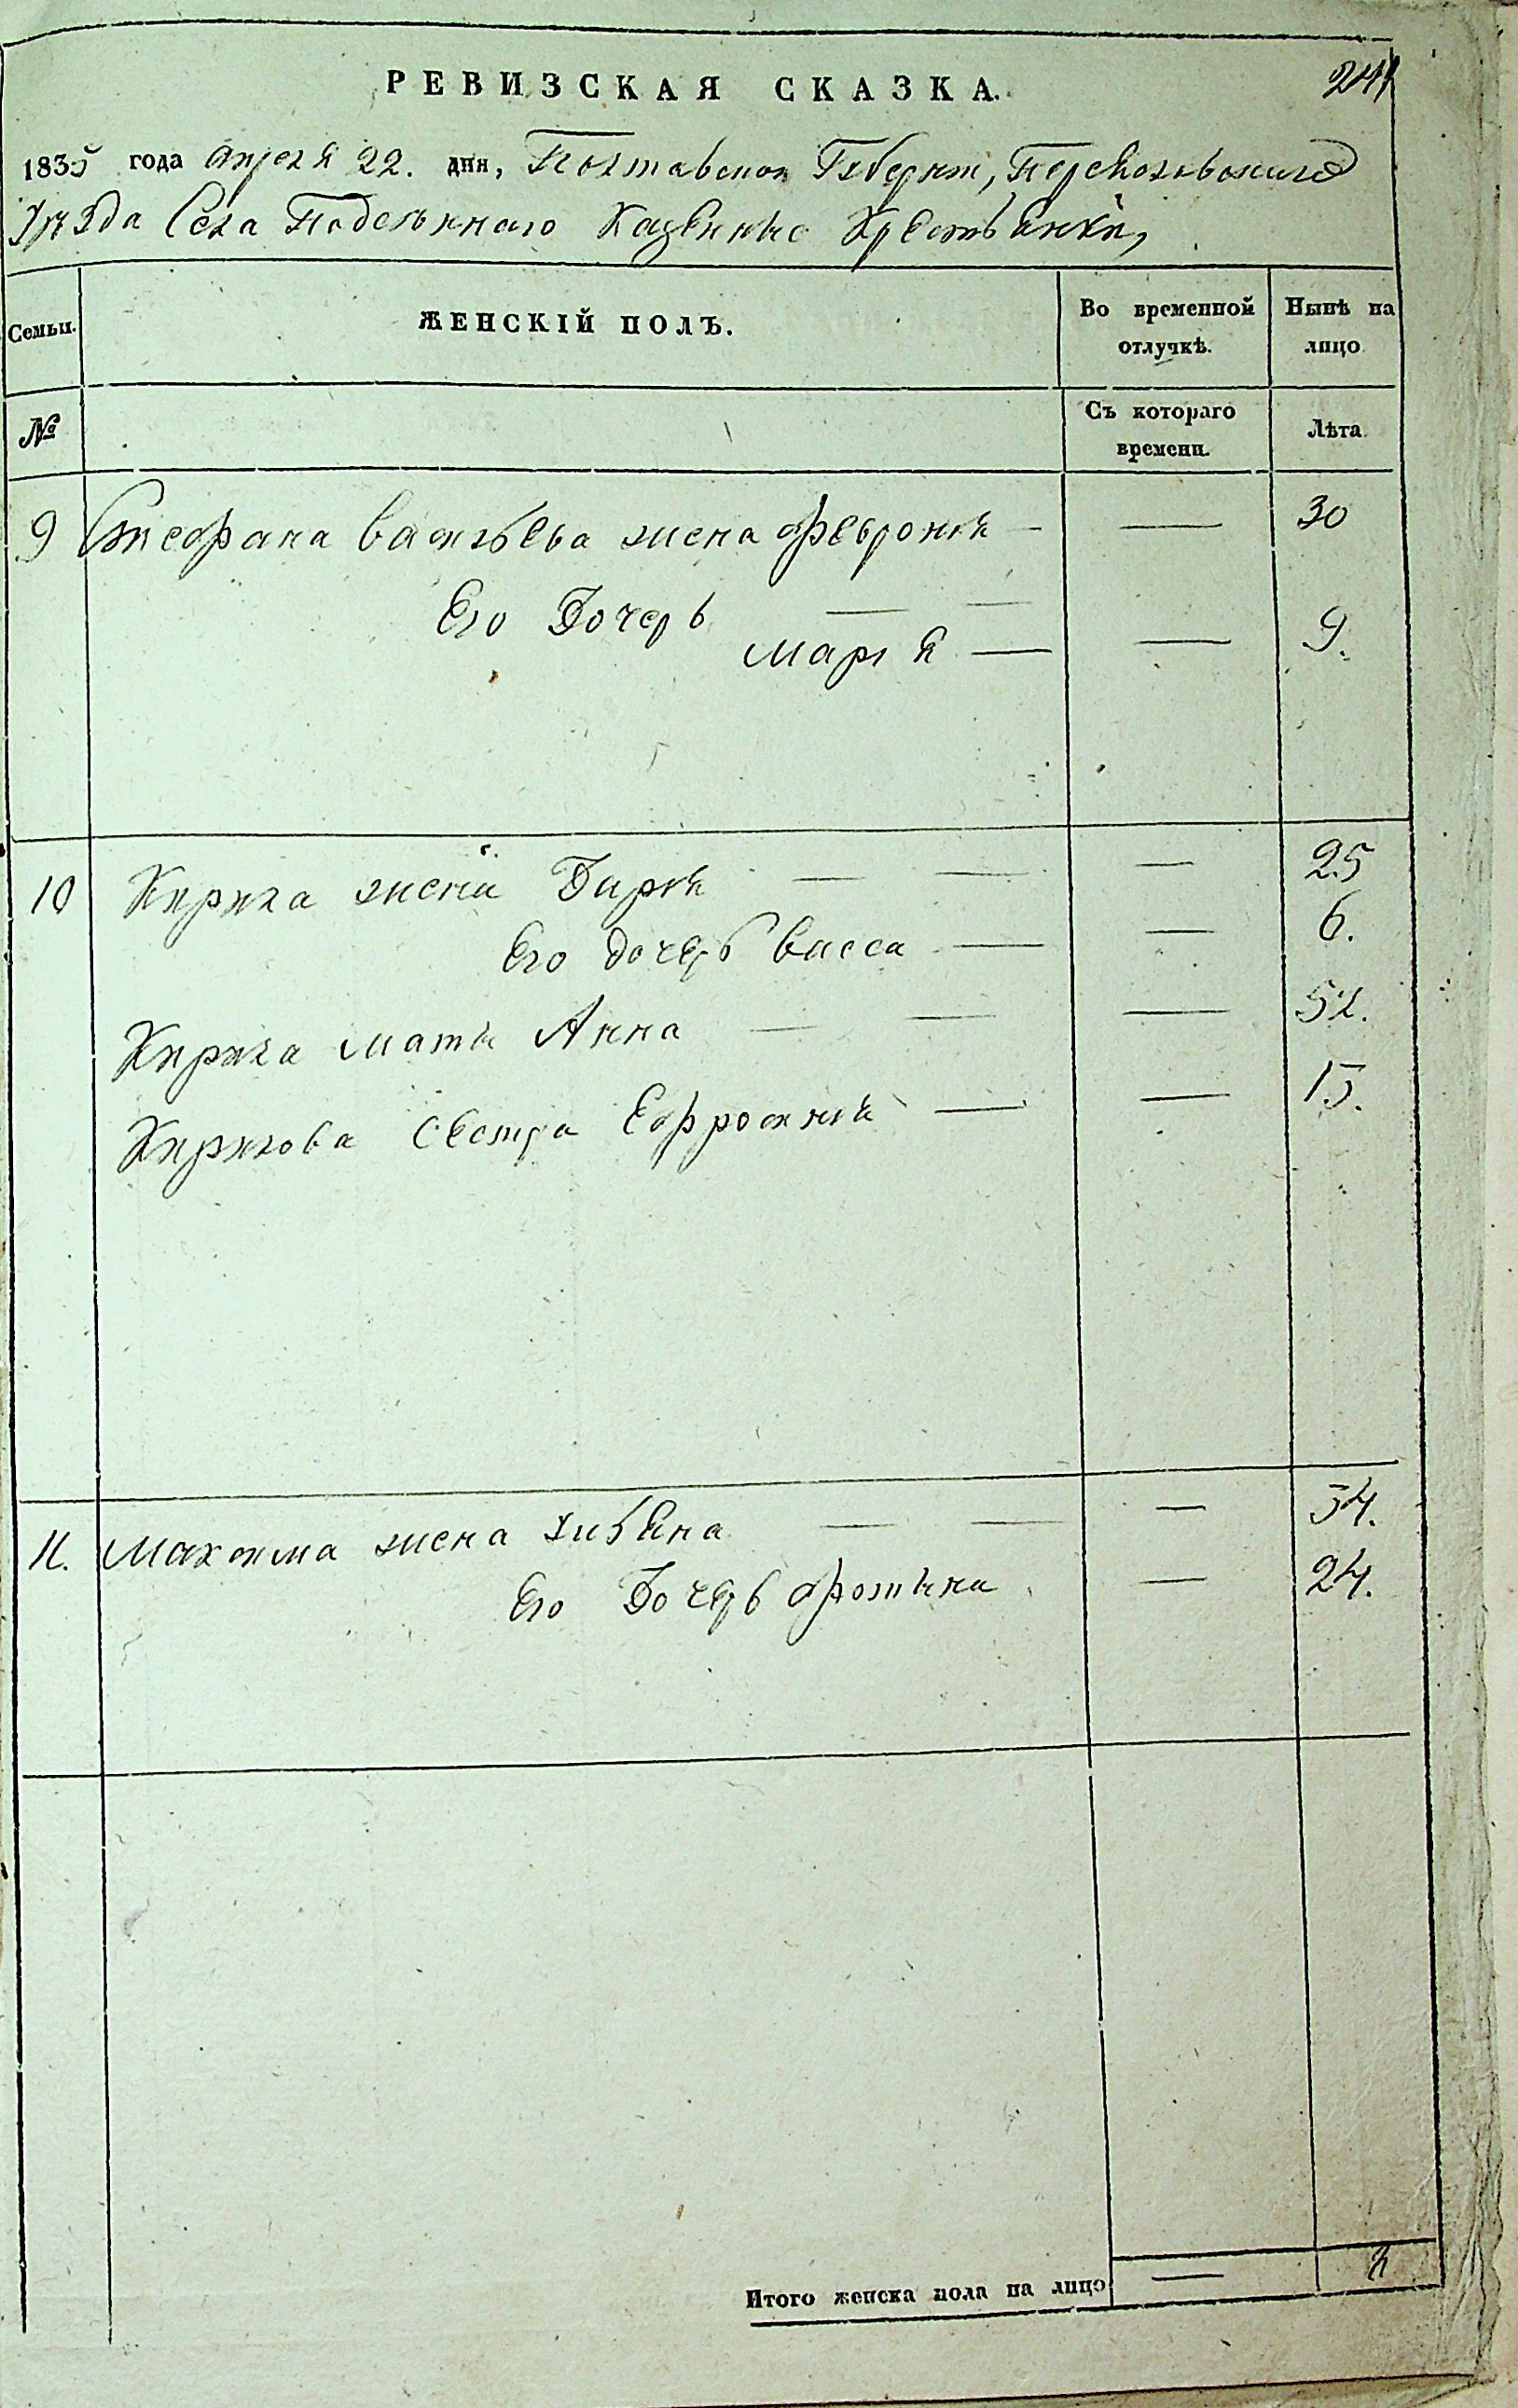 РЕВИЗСКАЯ СКАЗКА.
241
1835 года Апреля 22. дня, Полтавской Губернии, Переяславского
Уезда Села Подсинного Казенные Крестьянки,
Семьи. ЖЕНСКІЙ ПОЛЪ. Во временной отлучкѣ. Нынѣ на лицо
№ Съ котораго времени. Лѣта
9 Стефана Васильева жена Феврония — — 30
Его Дочерь — —
Мария — — 9.
10 Кирила жена Дария — — — 25
Его дочерь Васса — — 6.
Кирила мать Анна — — — 52.
Кирилова Сестра Ефросиния — — 15.
11. Максима жена Улияна — — — 54.
Его Дочерь Фотина — 24.
Итого женска пола на лицо —